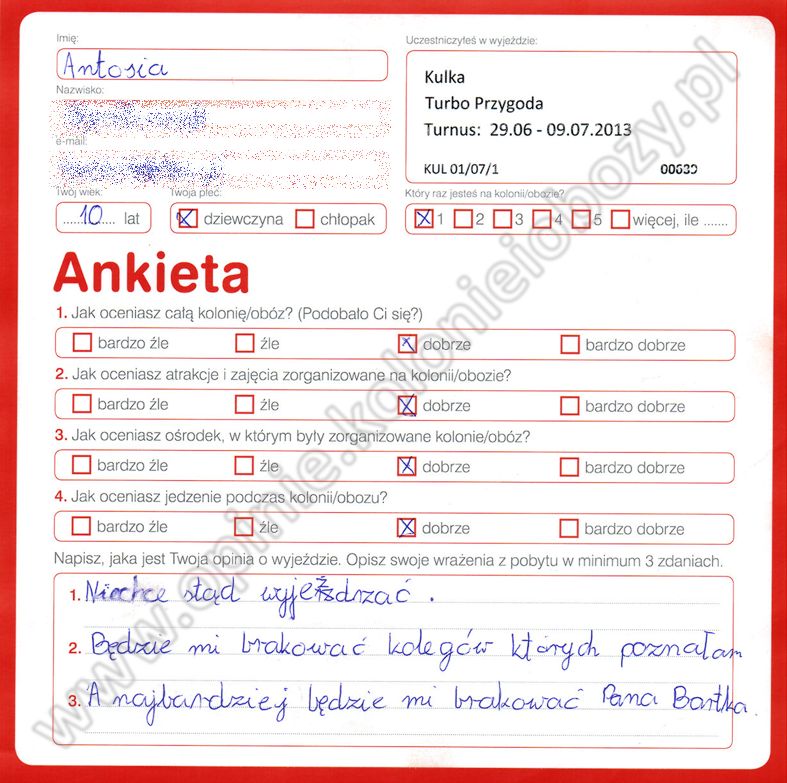 Imię:
Antosia
Nazwisko:
e-mail:
Twój wiek:
10 lat
Twoja płeć:
dziewczyna chłopak
Uczestniczyłeś w wyjeździe:
Kulka
Turbo Przygoda
Turnus: 29.06 - 09.07.2013
KUL 01/07/1 00639
Który raz jesteś na kolonii/obozie?
1 2 3 4 5 więcej, ile .......
Ankieta
1. Jak oceniasz całą kolonię/obóz? (Podobało Ci się?)
bardzo źle źle dobrze bardzo dobrze
2. Jak oceniasz atrakcje i zajęcia zorganizowane na kolonii/obozie?
bardzo źle źle dobrze bardzo dobrze
3. Jak oceniasz ośrodek, w którym były zorganizowane kolonie/obóz?
bardzo źle źle dobrze bardzo dobrze
4. Jak oceniasz jedzenie podczas kolonii/obozu?
bardzo źle źle dobrze bardzo dobrze
Napisz, jaka jest Twoja opinia o wyjeździe. Opisz swoje wrażenia z pobytu w minimum 3 zdaniach.
1. Niechce stąd wyjeżdrzać.
2. Będzie mi brakować kolegów których poznałam
3. A najbardziej będzie mi brakować Pana Bartka.
www.opinie.kolonieiobozy.pl